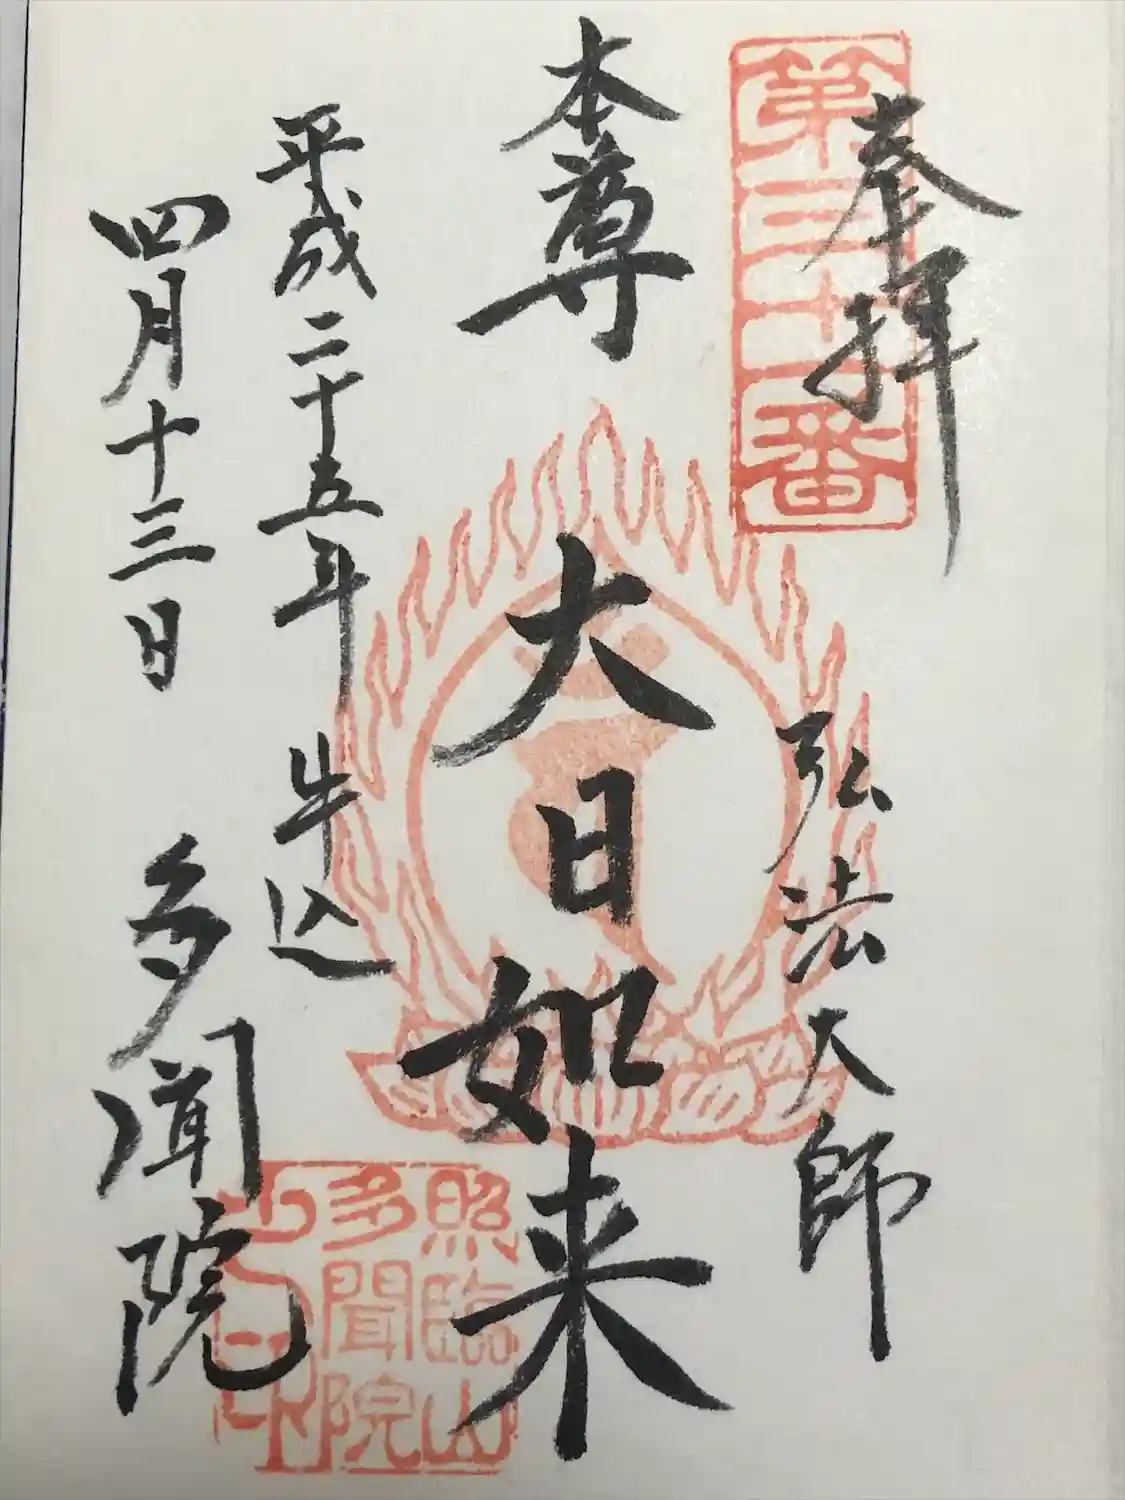 第三十一番
奉拝
弘法大師
本尊 大日如来
平成二十五年 牛込
四月十三日 多聞院
照臨山
多聞院
之印